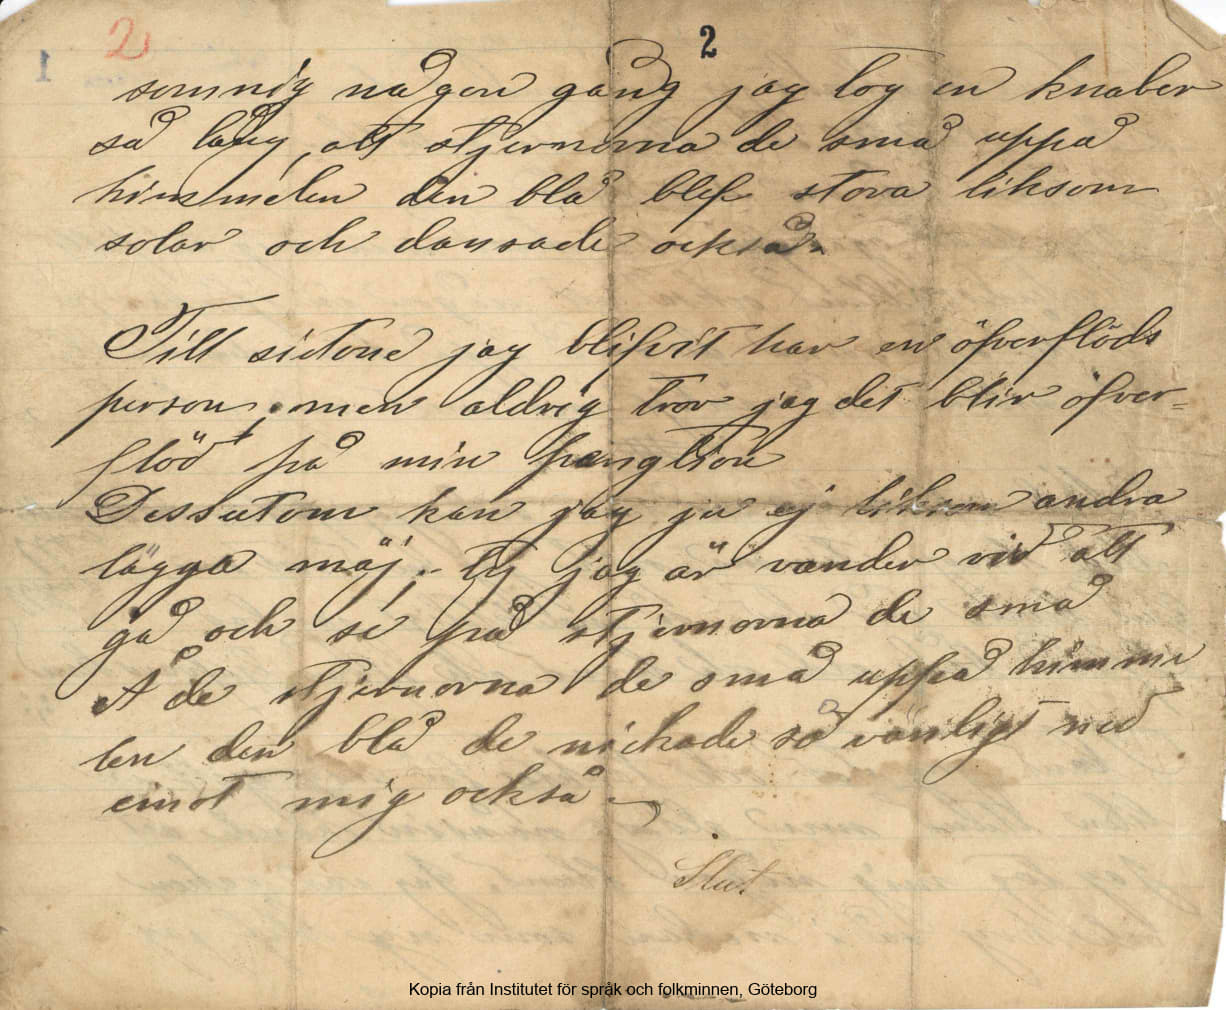 2 2
1
somnig någon gång jag tog en knaber
så lång, att stjernorna de små uppå
himmelen den blå blef stora liksom
solar och dansade också.
Till sistone jag blifvit har en öfverflöds
person, men aldrig tror jag det blir öfver=
flöd på min pangtion
Dessutom kan jag ju ej liksom andra
lägga mäj; ty jag är vander vid att
gå och se på stjernorna de små
Å de stjernorna de små uppå himme
len den blå de nickade så vänligt ned
emot mig också
Slut.
Kopia från Institutet för språk och folkminnen, Göteborg